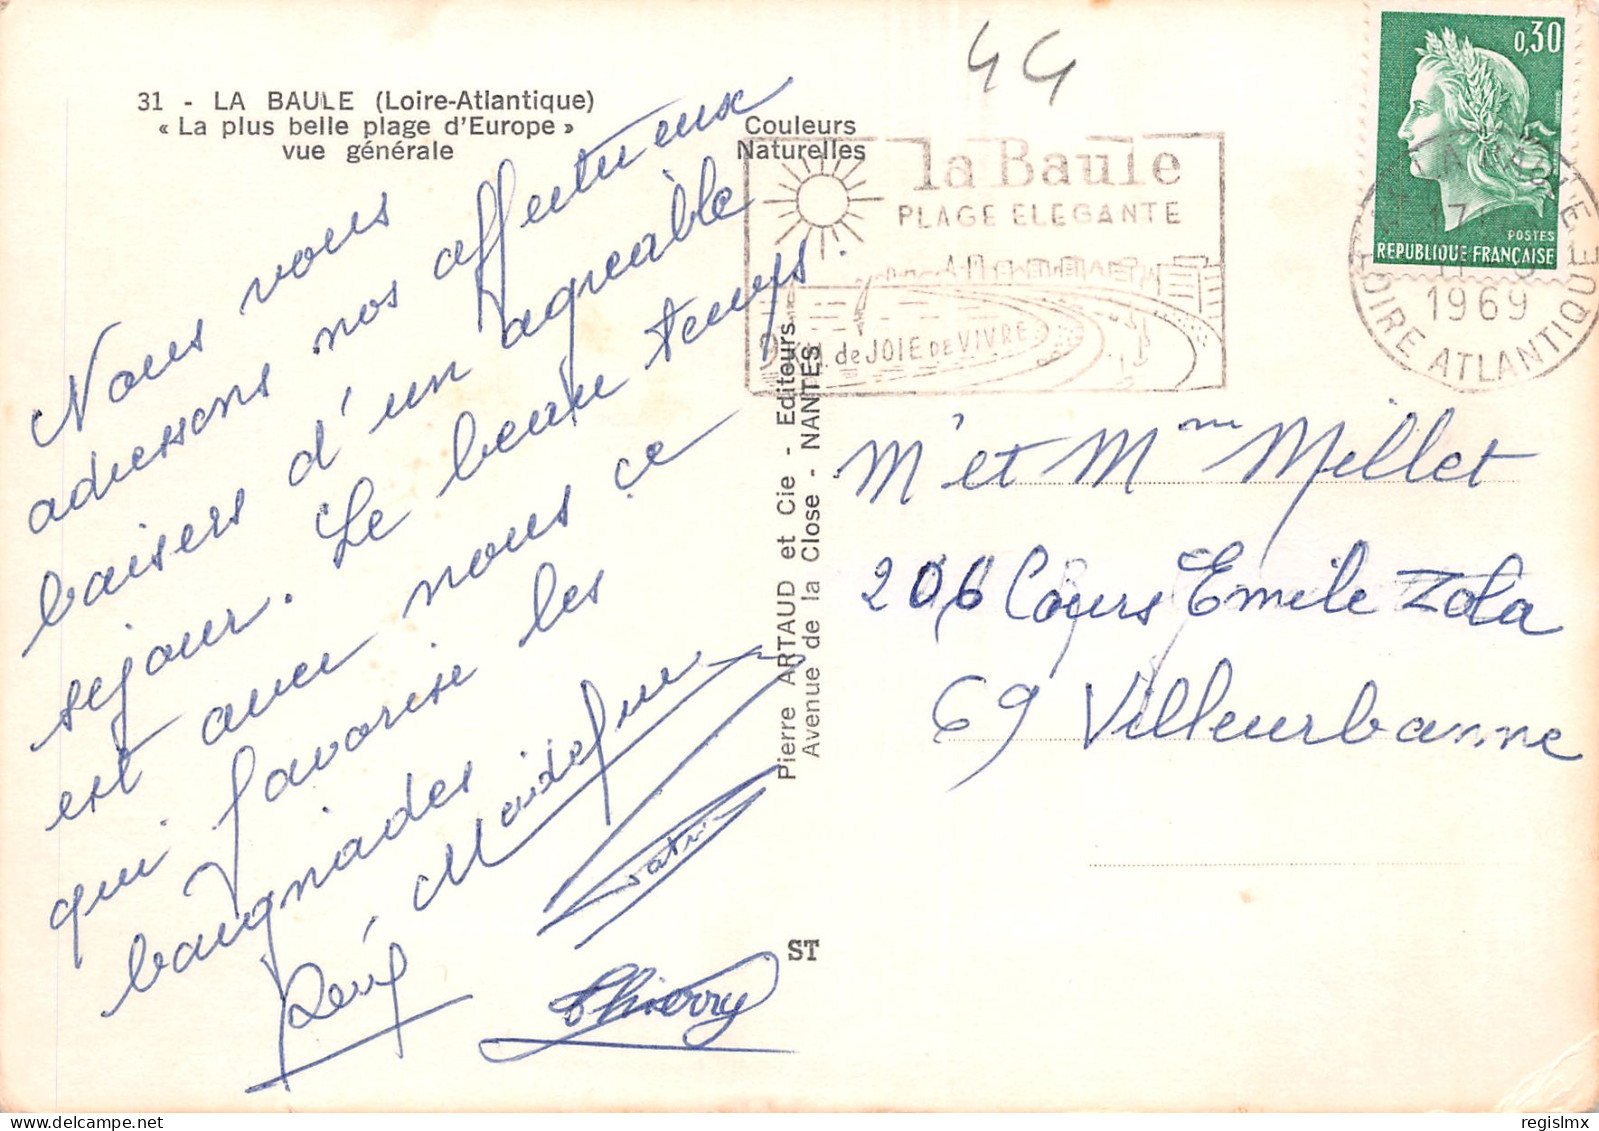 44
31 - LA BAULE (Loire-Atlantique)
« La plus belle plage d'Europe »
vue générale
Couleurs
Naturelles
la Baule
PLAGE ELEGANTE
de JOIE DE VIVRE
0,30
POSTES
REPUBLIQUE FRANÇAISE
LA BAULE
17
1969
LOIRE ATLANTIQUE
Nous vous
adressons nos affectueux
baisers d'un agréable
sejour. Le beau temps.
est avec nous ce
qui favorise les
baignades
René
Thierry
Pierre ARTAUD et Cie - Editeurs
Avenue de la Close - NANTES
ST
Mr et Mme Millet
206 Cours Emile Zola
69 Villeurbanne
regislmx